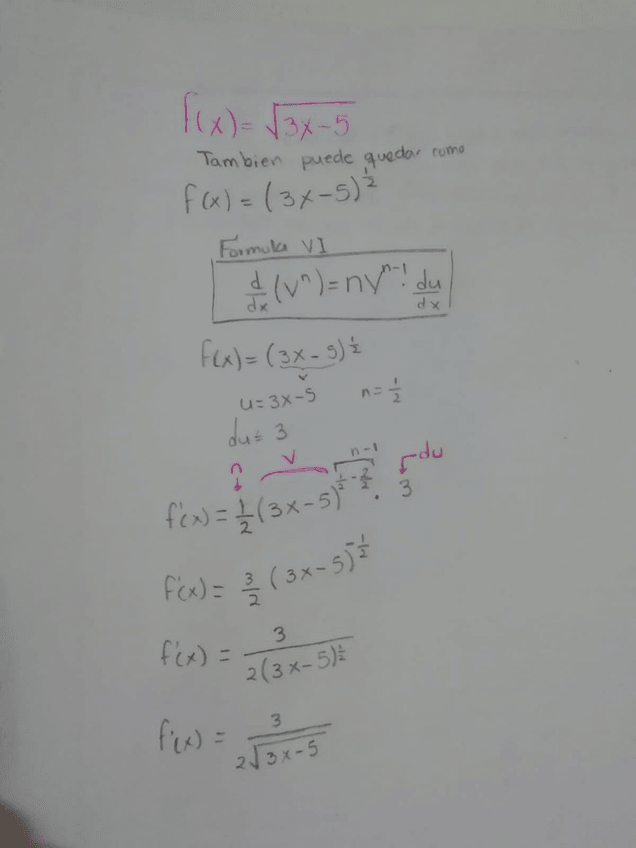 f(x)= √3x-5
Tambien puede quedar como
f(x) = (3x-5)^½
Formula VI
d/dx (vⁿ) = nvⁿ⁻¹ · du/dx
f(x) = (3x-5)^½
v
u=3x-5 n=½
du= 3
n v n-1 du
f'(x) = 1/2 (3x-5)^(1/2 - 2/2) · 3
f'(x) = 3/2 (3x-5)^-½
f'(x) = 3/2(3x-5)^½
f'(x) = 3/2√3x-5